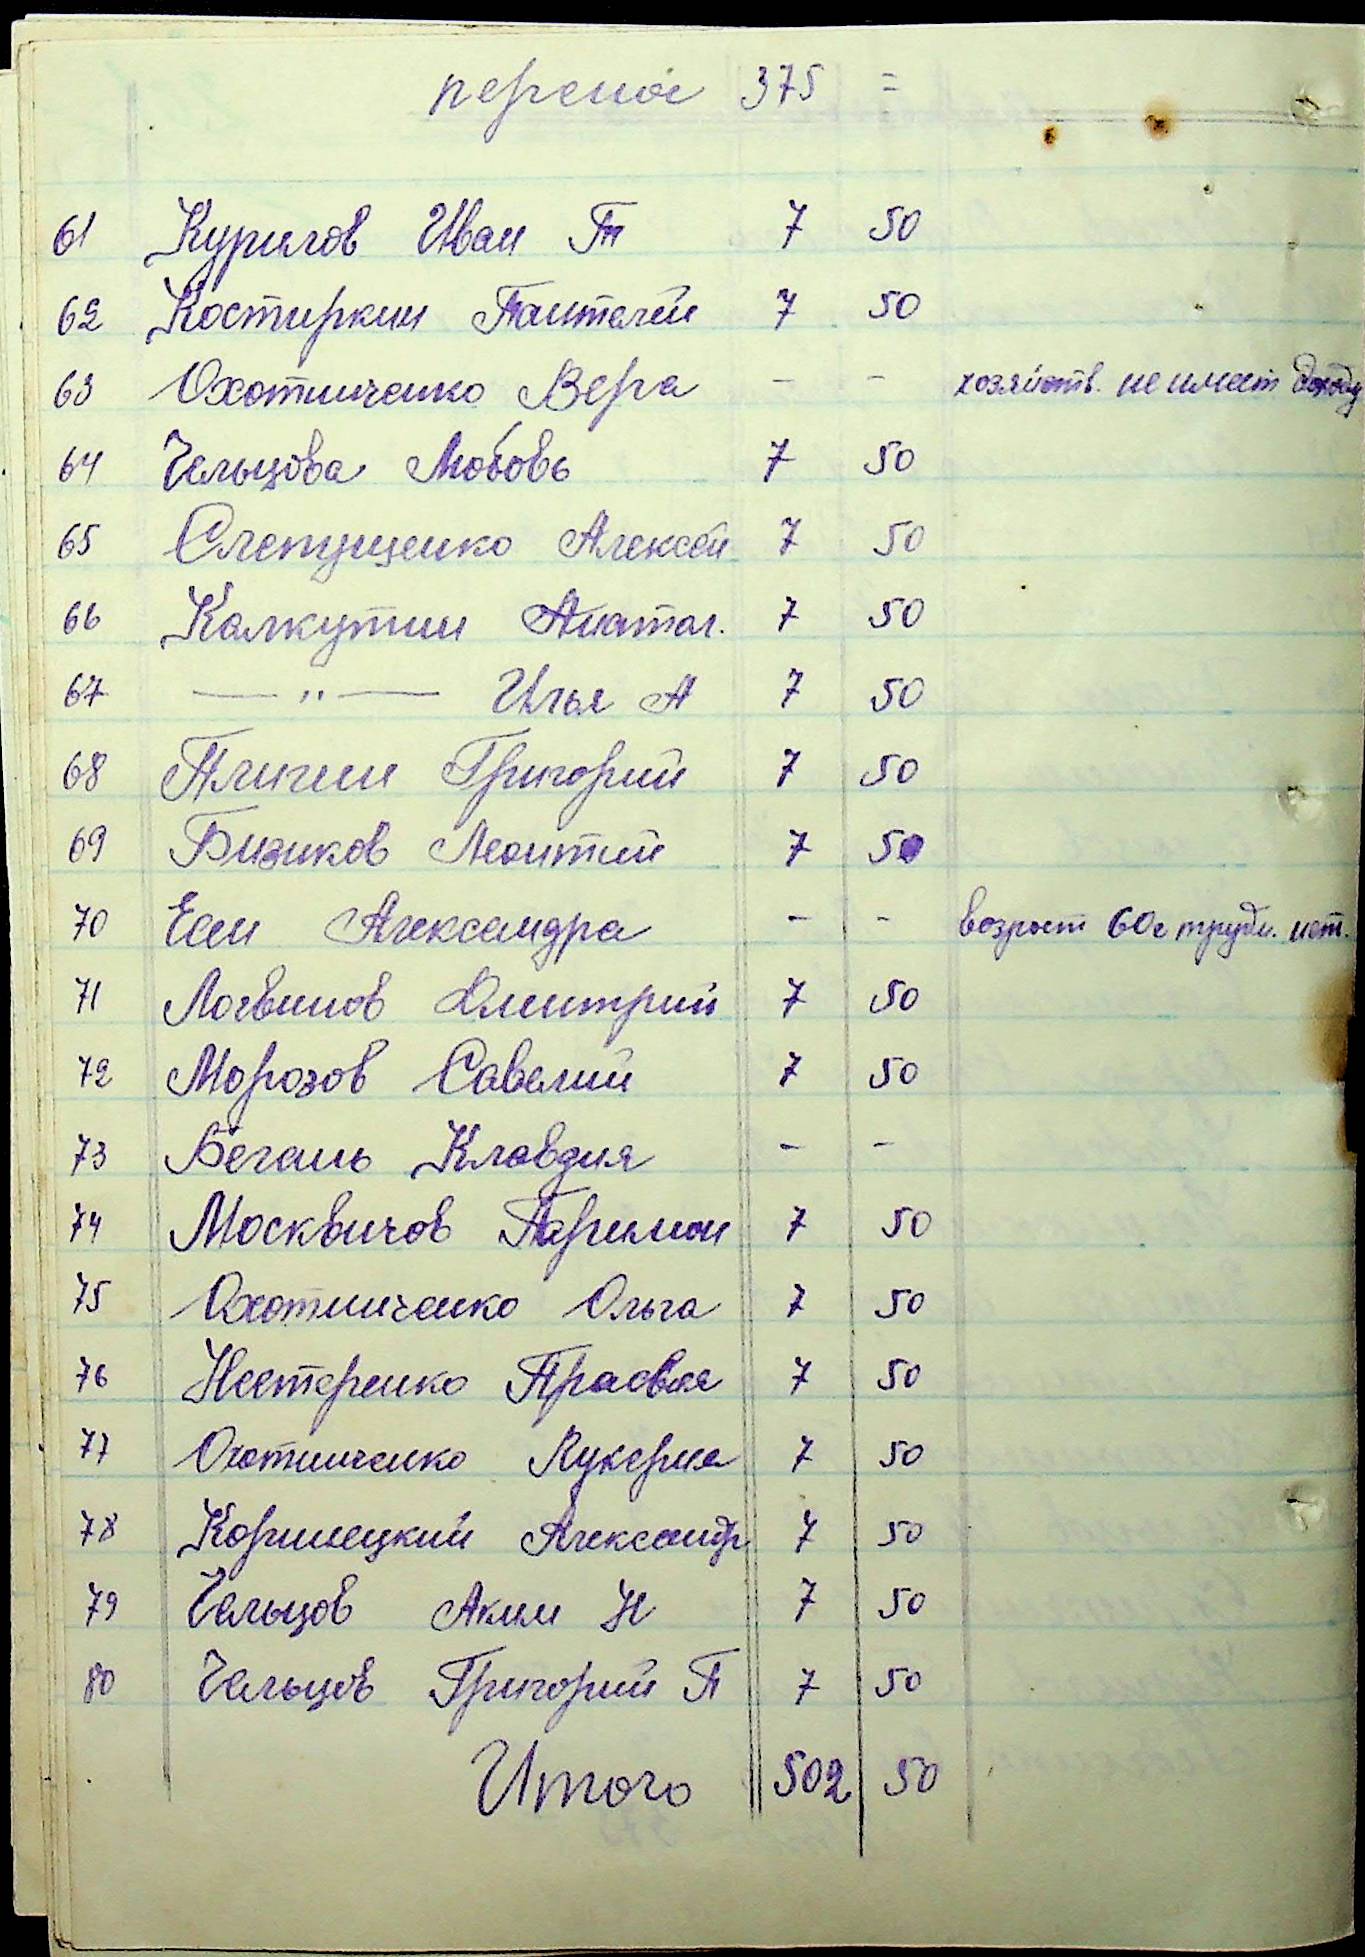 перенос 375 =
61 Курилов Иван П 7 50
62 Костиркин Пантелей 7 50
63 Охотниченко Вера - - хозяйств. не имеет доходу
64 Чельцова Любовь 7 50
65 Слепущенко Алексей 7 50
66 Калкутин Анатол. 7 50
67 — " — Илья А 7 50
68 Пличин Григорий 7 50
69 Бизиков Леонтий 7 50
70 Ееш Александра - - возраст 60 г трудн. нет.
71 Логвинов Дмитрий 7 50
72 Морозов Савелий 7 50
73 Бегань Клавдия - -
74 Москвичов Паримон 7 50
75 Охотниченко Ольга 7 50
76 Нестеренко Прасвия 7 50
77 Охотниченко Лукерия 7 50
78 Коринецкий Александр 7 50
79 Чельцов Аким Н 7 50
80 Чельцов Григорий П 7 50
Итого 502 50